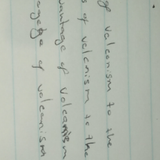 of valcanism to the
s of valcanism to the
vantage of Volcanism
of volcanism